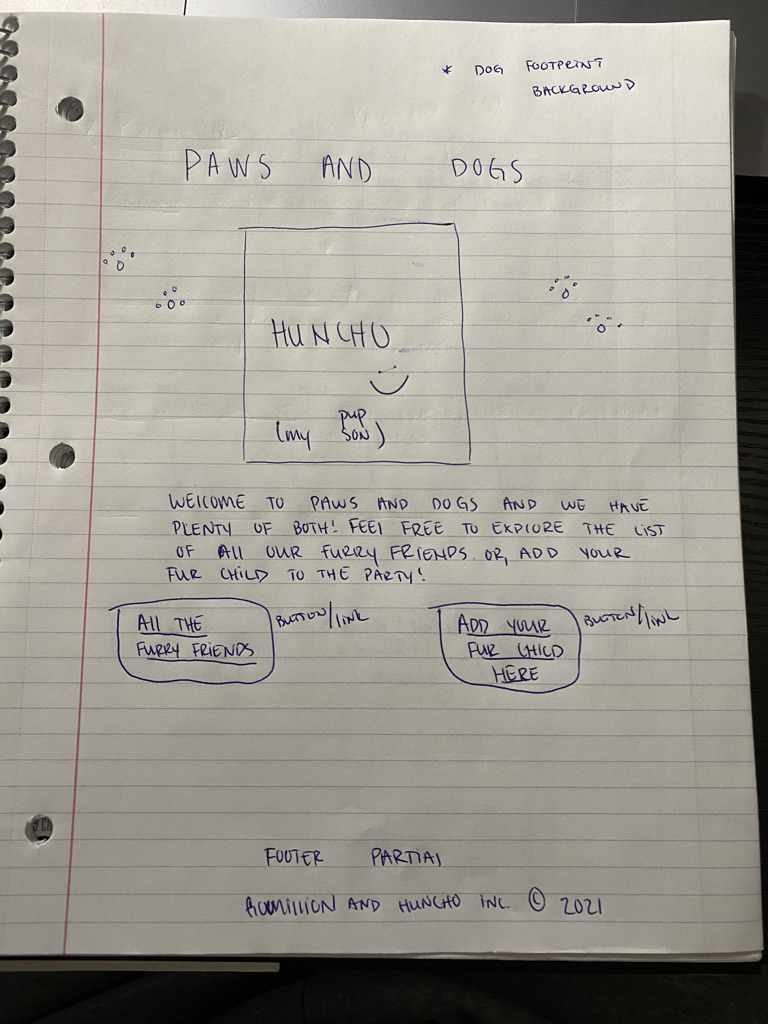 * DOG FOOTPRINT
BACKGROUND
PAWS AND DOGS
HUNCHO
(my pup
SON)
WElCOME TO PAWS AND DOGS AND WE HAVE
PLENTY OF BOTH! FEEl FREE TO EXPlORE THE lIST
OF All OUR FURRY FRIENDS. OR, ADD YOUR
FUR CHILD TO THE PARTY!
All THE
FURRY FRIENDS
BUTTON/lINK
ADD YOUR
FUR CHILD
HERE
BUTTON/lINK
FOOTER PARTIAl
AND HUNCHO INC. © 2021